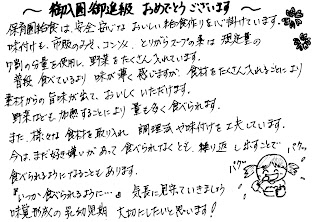 ～御入園御進級 おめでとうございます～
保育園給食は、安全・安心な おいしい給食作りを心掛けています。
味付けも、市販のみそ、コンソメ、とりがらスープの素は 規定量の
7割の分量を使用し、野菜をたくさん入れています。
普段 食べているより 味が薄く感じますが、食材をたくさん入れることにより
素材からの旨味が出て、おいしくいただけます。
野菜なども 加熱することにより 量も多く食べられます。
また、様々な 食材を取り入れ 調理法や味付けを工夫しています。
今は、まだ好き嫌いがあって食べられなくとも、繰り返し出すことで
食べられるようになることもあります。
『いつか食べられるように…』 気長に見守っていきましょう
味覚形成の乳幼児期 大切にしたいと思います!
パクッ
パクッ